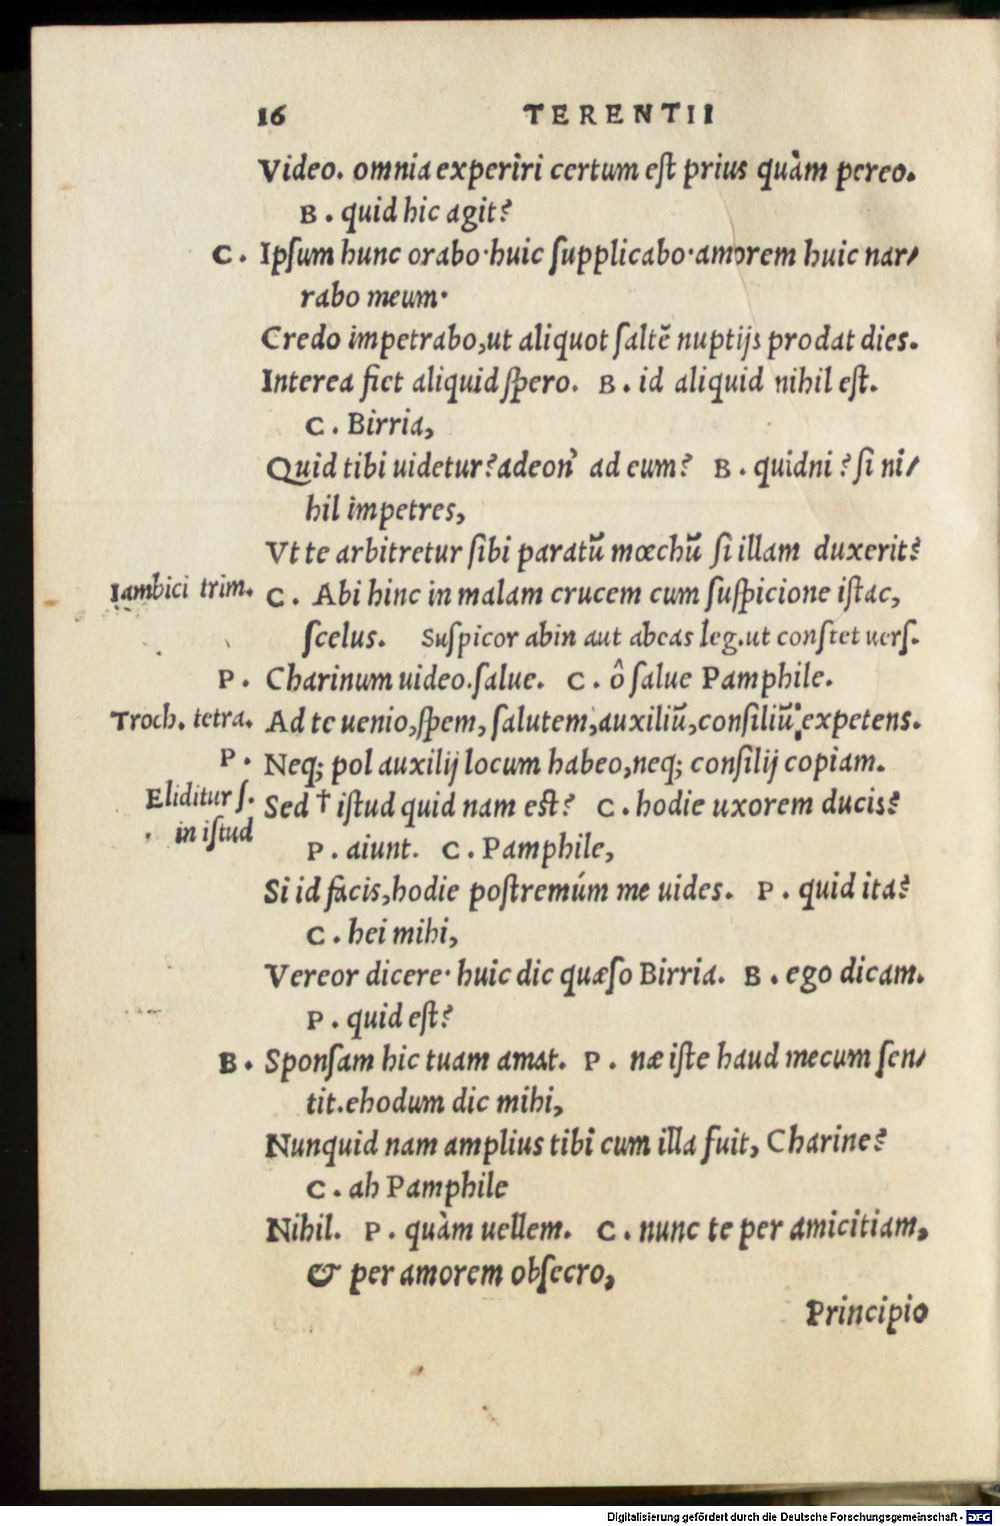 16 TERENTII
Video. omnia experiri certum est prius quàm pereo.
B. quid hic agit?
C. Ipsum hunc orabo·huic supplicabo·amorem huic nar/
rabo meum·
Credo impetrabo,ut aliquot saltē nuptijs prodat dies.
Interea fiet aliquid spero. B. id aliquid nihil est.
C. Birria,
Quid tibi uidetur?adeon' ad eum? B. quidni? si ni/
hil impetres,
Vt te arbitretur sibi paratū mœchū si illam duxerit?
Iambici trim. C. Abi hinc in malam crucem cum suspicione istac,
scelus. Suspicor abin aut abeas leg.ut constet uers.
P. Charinum uideo.salue. C. ô salue Pamphile.
Troch. tetra. Ad te uenio,spem, salutem,auxiliū,consiliū expetens.
P. Neq; pol auxilij locum habeo,neq; consilij copiam.
Eliditur s. Sed † istud quid nam est? C. hodie uxorem ducis?
in istud
P. aiunt. C. Pamphile,
Si id facis,hodie postremúm me uides. P. quid ita?
C. hei mihi,
Vereor dicere· huic dic quæso Birria. B. ego dicam.
P. quid est?
B. Sponsam hic tuam amat. P. næ iste haud mecum sen/
tit.ehodum dic mihi,
Nunquid nam amplius tibi cum illa fuit, Charine?
C. ah Pamphile
Nihil. P. quàm uellem. C. nunc te per amicitiam,
& per amorem obsecro,
Principio
Digitalisierung gefördert durch die Deutsche Forschungsgemeinschaft - DFG